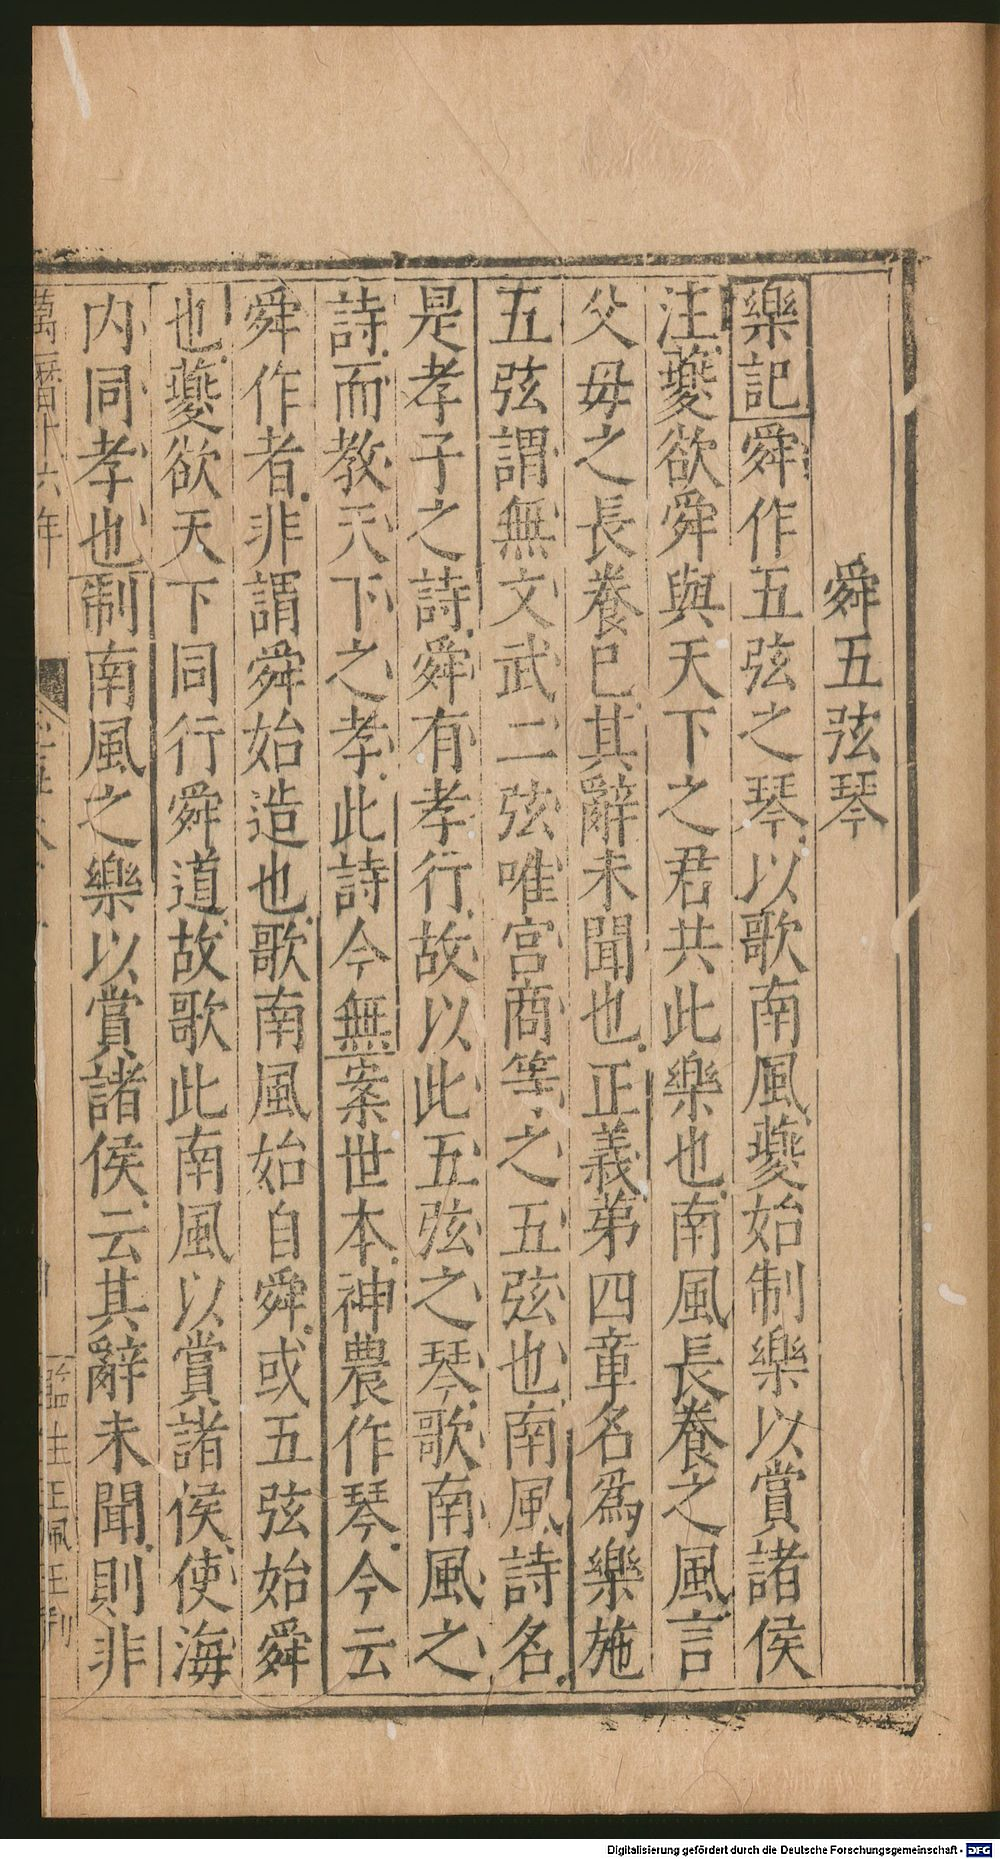 舜五弦琴
樂記舜作五弦之琴以歌南風夔始制樂以賞諸侯
注夔欲舜與天下之君共此樂也南風長養之風言
父母之長養已其辭未聞也正義弟四章名為樂施
五弦謂無文武二弦唯宮商等之五弦也南風詩名
是孝子之詩舜有孝行故以此五弦之琴歌南風之
詩而教天下之孝此詩今無案世本神農作琴今云
舜作者非謂舜始造也歌南風始自舜或五弦始舜
也夔欲天下同行舜道故歌此南風以賞諸侯使海
内同孝也制南風之樂以賞諸侯云其辭未聞則非
萬曆十六年
監生王珮玉刊
Digitalisierung gefördert durch die Deutsche Forschungsgemeinschaft - DFG